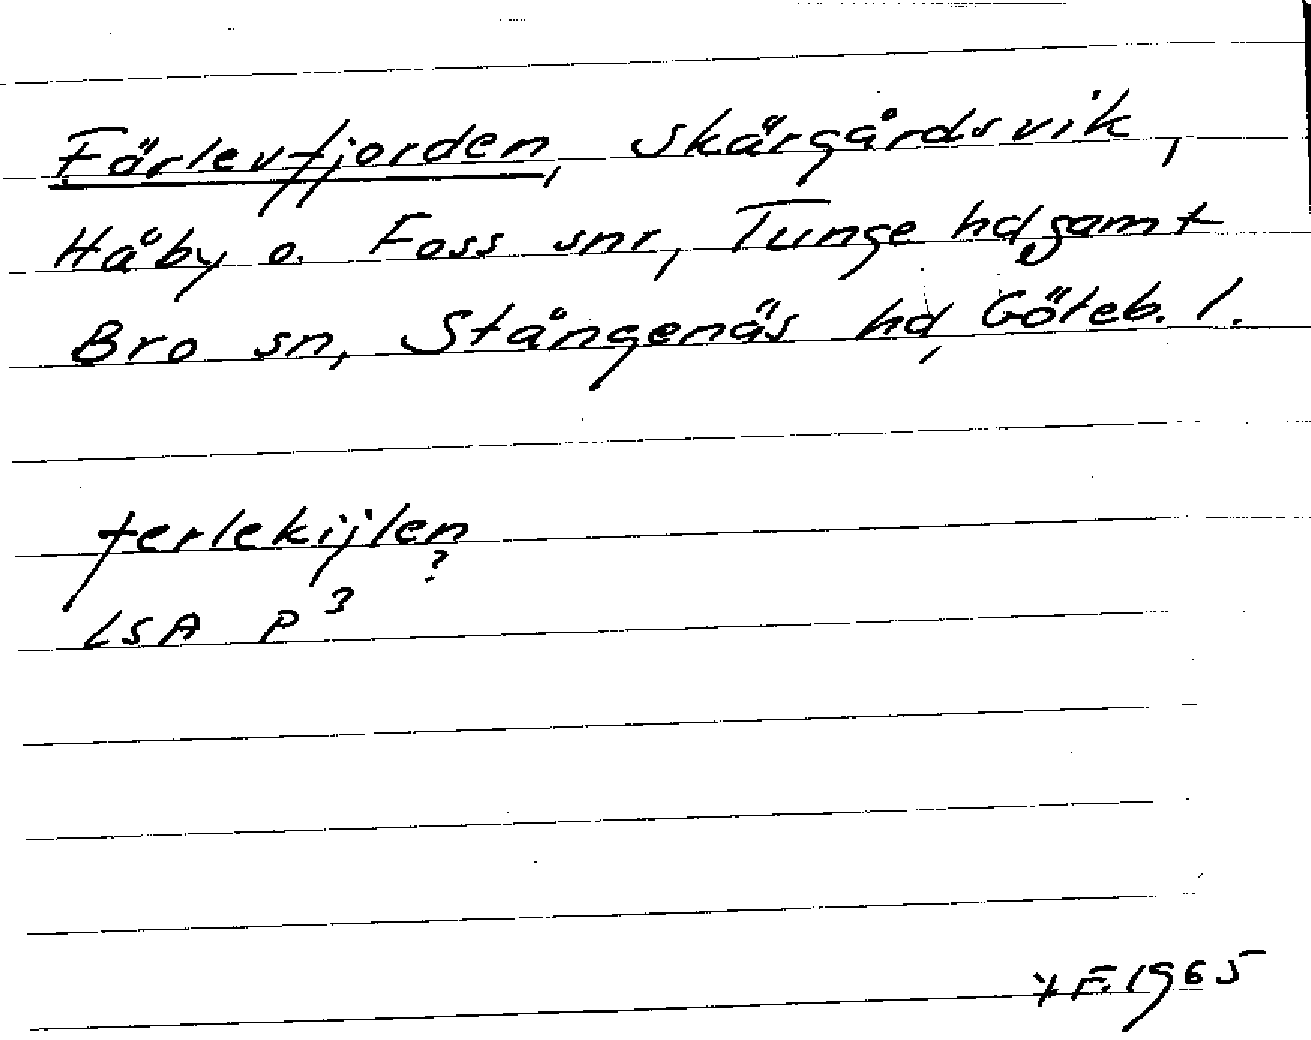 Färlevfjorden, skärgårdsvik,
Håby o. Foss snr, Tunge hd samt
Bro sn, Stångenäs hd, Göteb. l.
ferlekijlen
?
LSA P3
F. 1965